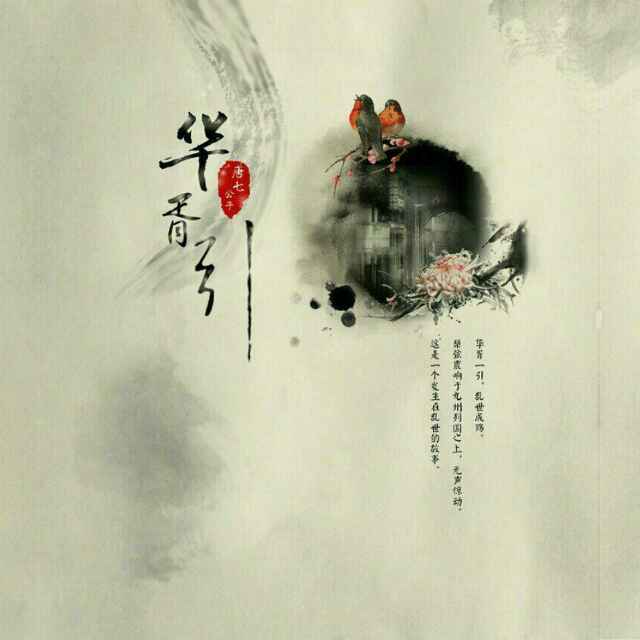 华胥引
唐七
公子
华胥一引，乱世成殇。
琴弦震响于九州列国之上，无声惊动。
这是一个发生在乱世的故事。